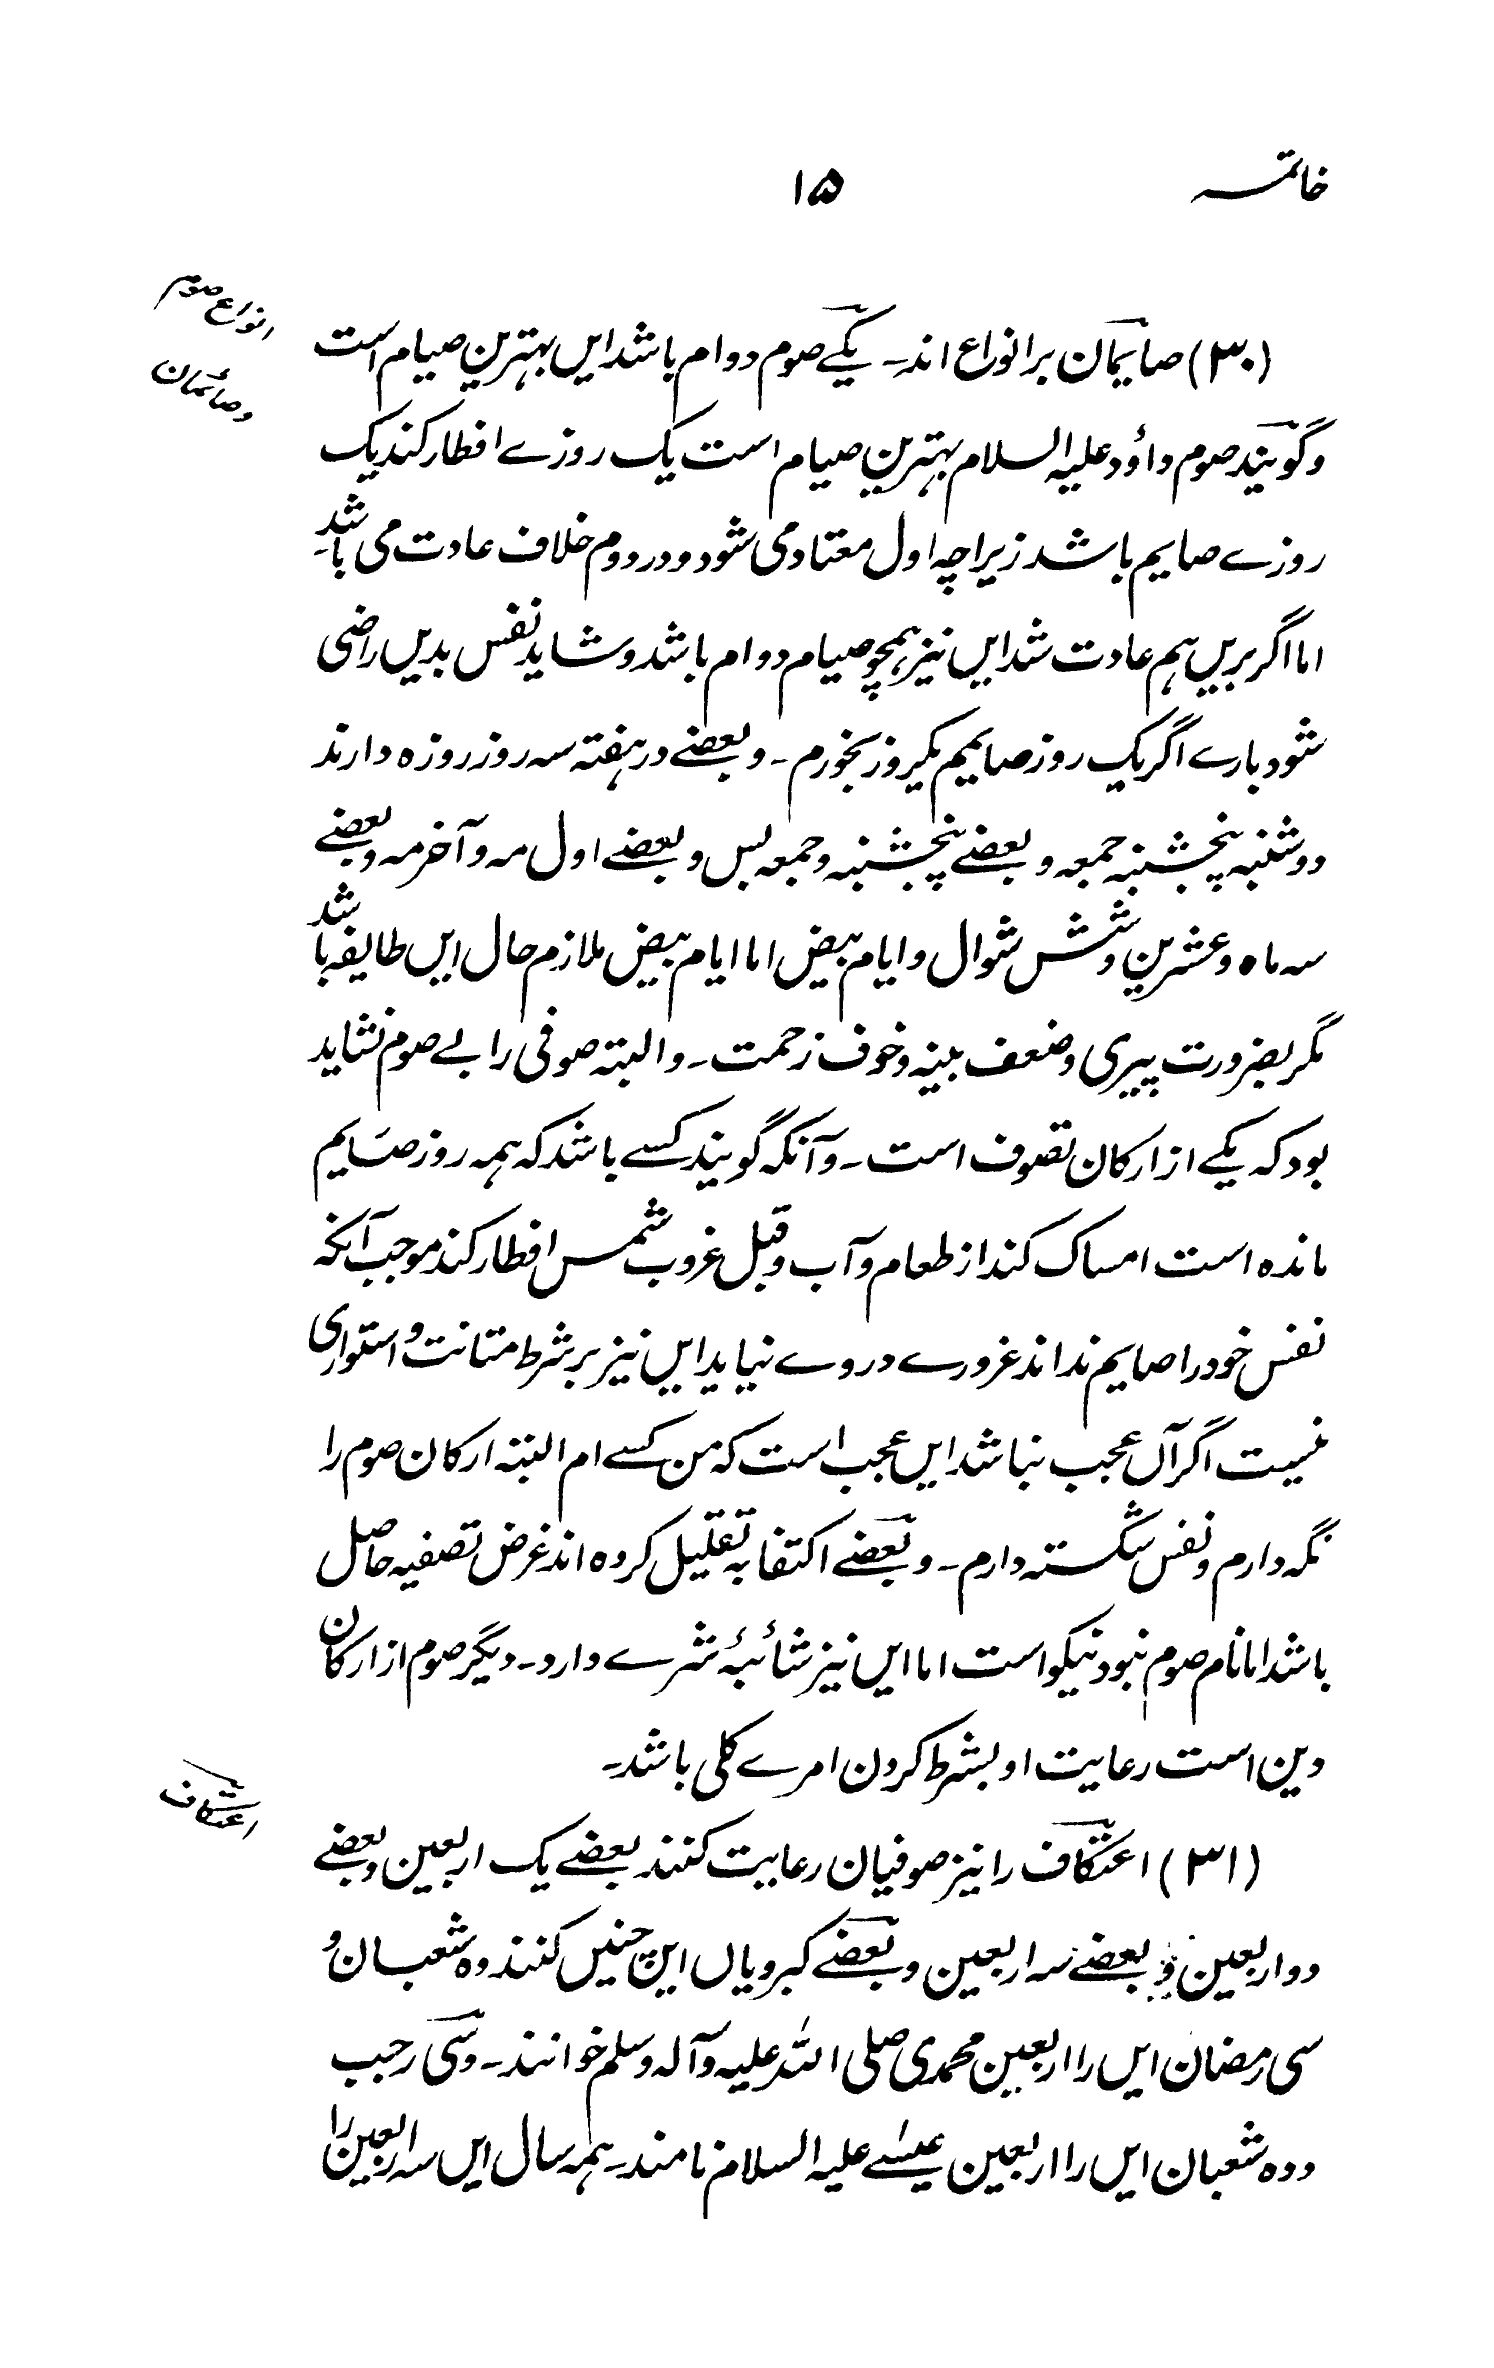 خاتمہ
۱۵
انواع صوم
وصائمان
(۳۰) صایمان بر انواع اند۔ یکے صوم دوام باشد ایں بہترین صیام است
و گویند صوم داؤد علیہ السلام بہترین صیام است یک روزے افطار کند یک
روزے صایم باشد زیراچہ اول معتاد می شود و در دوم خلاف عادت می باشد۔
اما اگر بریں ہم عادت شد ایں نیز ہمچو صیام دوام باشد و شاید نفس بدیں راضی
شود بارے اگر یک روز صایمم یکروز بخورم۔ و بعضے در ہفتہ سہ روز روزہ دارند
دوشنبہ پنجشنبہ جمعہ و بعضے پنجشنبہ و جمعہ بس و بعضے اول مہ و آخر مہ و بعضے
سہ ماہ و عشرین و شش شوال و ایام بیض اما ایام بیض ملازم حال ایں طایفہ باشد
مگر بضرورت پیری و ضعف بینہ و خوف زحمت۔ و البتہ صوفی را بے صوم نشاید
بود کہ یکے از ارکان تصوف است۔ و آنکہ گویند کسے باشد کہ ہمہ روز صایم
ماندہ است امساک کند از طعام و آب و قبل غروب شمس افطار کند موجب آنکہ
نفس خود را صایم نداند غرورے در وے نیاید ایں نیز بر شرط متانت و استواری
نیست اگر آں عجب نباشد ایں عجب است کہ من کسے ام البتہ ارکان صوم را
نگہ دارم و نفس شکستہ دارم۔ و بعضے اکتفا بہ تقلیل کردہ اند غرض تصفیہ حاصل
باشد اما نام صوم نبود نیکو است اما ایں نیز شائبۂ شرے دارد۔ دیگر صوم از ارکان
دین است رعایت او بشرط کردن امرے کلی باشد۔
اعتکاف
(۳۱) اعتکاف را نیز صوفیان رعایت کنند بعضے یک اربعین و بعضے
دو اربعین و بعضے سہ اربعین و بعضے کبرویاں ایں چنیں کنند دہ شعبان و
سی رمضان ایں را اربعین محمدی صلی اللہ علیہ و آلہ وسلم خوانند۔ و سی رجب
و دہ شعبان ایں را اربعین عیسےٰ علیہ السلام نامند۔ ہمہ سال ایں سہ اربعین را